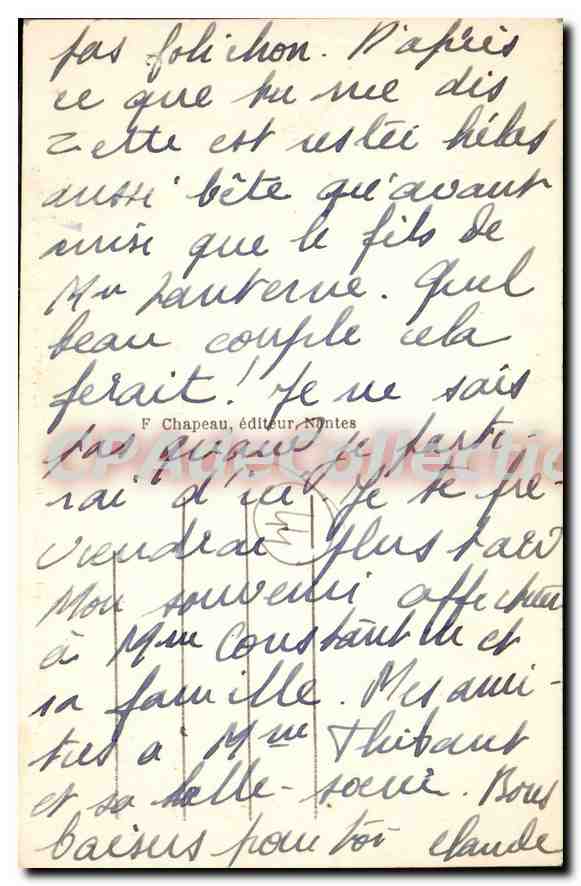 pas folichon. D'après
ce que tu me dis
Zette est restée hélas
aussi bête qu'avant
que le fils de
Mr Lanterne. Quel
beau couple cela
ferait! Je ne sais
F Chapeau, éditeur, Nantes
pas quand je parti-
rai d'ici. Je te pré-
viendrai plus tard
Mon souvenir affectueux
à Mme Constantin et
sa famille. Mes ami-
tiés à Mme Thibaut
et sa belle-soeur. Bons
baisers pour toi Claude
CPADeCollection